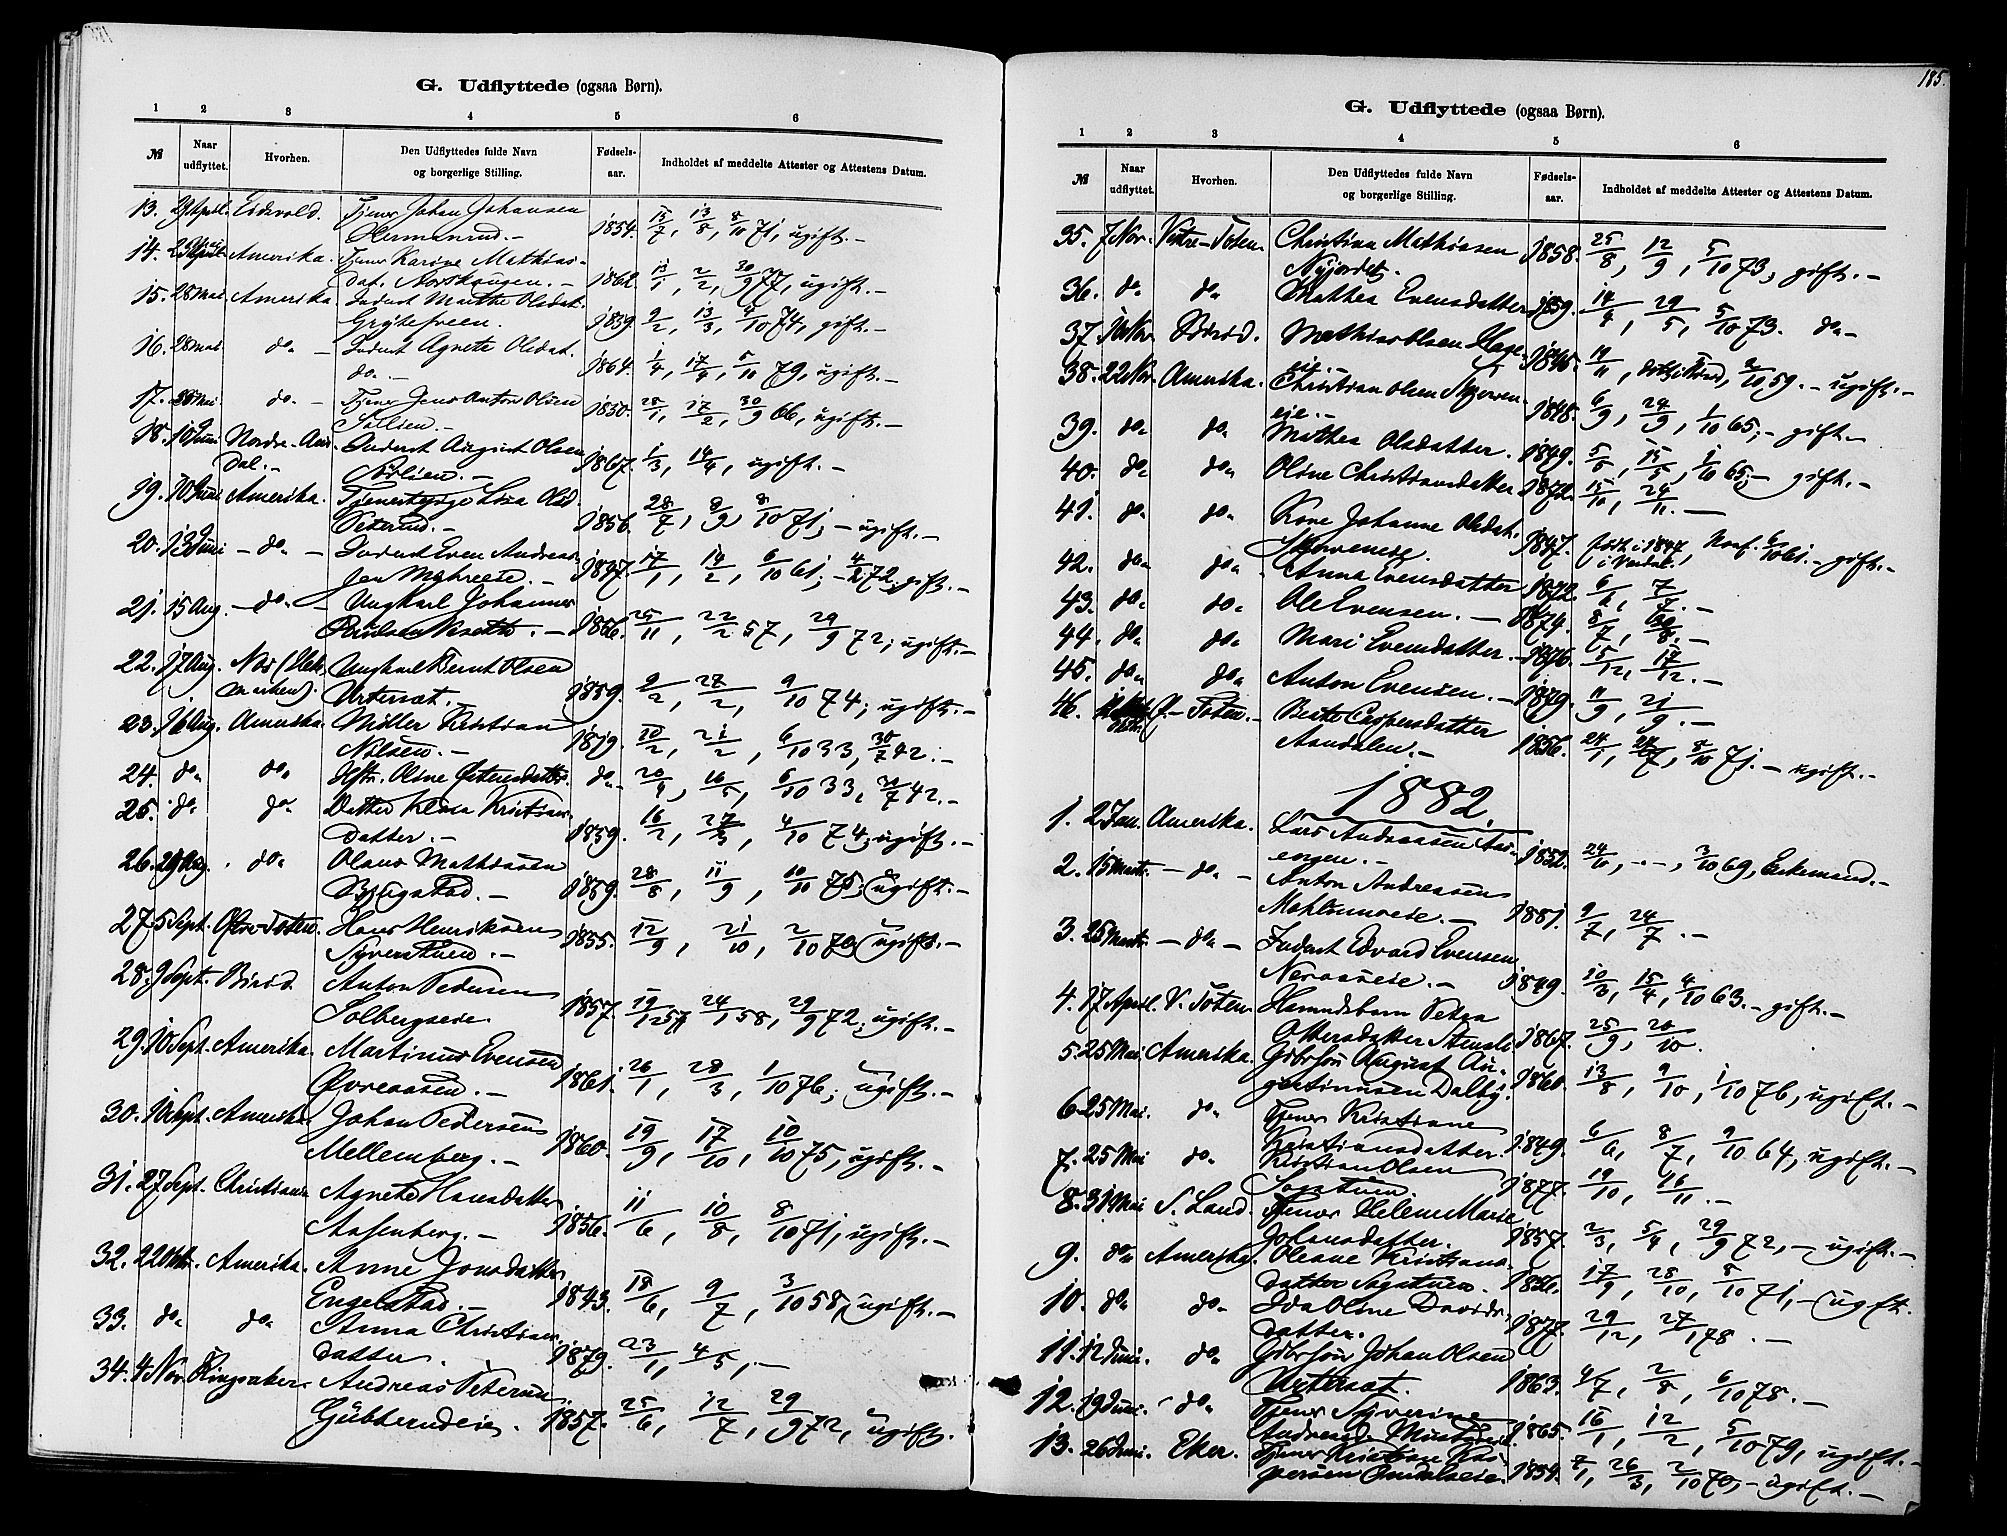 G. Udflyttede (ogsaa Børn).
1 2 3 4 5 6
№ Naar udflyttet. Hvorhen. Den Udflyttedes fulde Navn og borgerlige Stilling. Fødsels-aar. Indholdet af meddelte Attester og Attestens Datum.
13. April. Eidsvold. Tjener Johan Johansen
1854. 8/10 71, ugift.-
14. April Amerika. Tjener Karine Mathias-
dat. 1862. 30/9 77, ugift.-
15. 28 Mai Amerika. Inderst Marthe Olsdat.
1839. 9/2, 13/3, 4/10 74, gift.-
16. 28 Mai do. - Inderst Agnete Olsdat.
do. - 1864. 1/4, 17/4, 5/10 79, ugift.-
17. 28 Mai do. - Tjener Jens Anton Olsen
1850. 28/1, 17/2, 30/9 66, ugift.-
18. 10 Juni Nordre-Aur-
dal.- Inderst August Olsen
1867. 1/3, 14/4, ugift.-
19. 10 Juni Amerika. Tjenestepige Lisa Olsd.
Peterud.- 1856. 28/7, 8/9, 8/10 71,- ugift.-
20. 13 Juni - do. - Inderst Even Andreas-
sen 1847. 17/1, 14/2, 6/10 61; 72, gift.-
21. 15 Aug. - do. - Ungkarl Johannes
1856. 25/11, 22/2 57, 29/9 72; ugift.-
22. 17 Aug. Næs (Hede-
marken). Ungkarl Bernt Olsen
Urtersæt.- 1859. 9/2, 27/2, 9/10 74; ugift.-
23. 16 Aug. Amerika. Møller Kristian
Nilsen.- 1819. 10/2, 21/2, 6/10 33, 30/7 42.-
24. do. do. Hstr. Oline do. 20/4, 16/5, 6/10 33, 30/7 42.-
25. do. do. Datter Klena Kristians-
datter.- 1859. 16/2, 27/3, 4/10 74, ugift.-
26. 29 Aug. do. Olaus Mathiasen
1859. 28/8, 11/9, 10/10 75, ugift.-
27. 5 Sept. Østre-Toten. Hans Henriksen
Syverstuen.- 1855. 12/9, 21/10, 2/10 70, ugift.-
28. 9 Sept. Birid Anton Pedersen
Solbergseie. 1857. 19/12 57, 24/1 58, 29/9 72, ugift.-
29. 10 Sept. Amerika. Martinus Evensen
Øvreaasen.- 1861. 26/1, 28/3, 1/10 76; ugift.-
30. 10 Sept. Amerika. Johan Pedersen
Mellemberg.- 1860. 19/9, 17/10, 10/10 75, ugift.-
31. 27 Sept. Christiania Agnete Hansdatter
Aasenberg.- 1856. 11/6, 10/8, 8/10 71, ugift.-
32. 22 Oktr. Amerika. Anne Jonsdatter
Engelstad.- 1843. 18/6, 9/7, 3/10 58, ugift.-
33. do. do. Anna Christians-
datter. 1879. 23/1, 4/5, -
34. 4 Nov. Ringsaker. Andreas Petersen
1857. 25/6, 12/7, 29/9 72, ugift.
185.
G. Udflyttede (ogsaa Børn).
1 2 3 4 5 6
№ Naar udflyttet. Hvorhen. Den Udflyttedes fulde Navn og borgerlige Stilling. Fødsels-aar. Indholdet af meddelte Attester og Attestens Datum.
35. 7 Nov. Vestre-Toten. Christian Mathiasen
Nyjordet. 1858. 25/8, 12/9, 5/10 73, gift.-
36. do. do. Mathea Evensdatter 1859. 14/4, 29/5, 5/10 73. do.-
37. Nov. Mathias Olsen Hage-
eie.- 1845. 14/11, 2/10 59.- ugift.-
38. 22 Nov. Amerika. Christian Olsen
eie.- 1848. 6/9, 24/9, 1/10 65,- gift.-
39. do. do. Mathea Olsdatter. 1849. 1/10 65,- gift.-
40. do. do. Oline Christiansdatter 1872. 15/10, 24/11.-
41. do. do. Kone Johanne Olsdat.
1847. født i 1847, Konf. 6/10 61.- gift.-
42. do. do. Anna Evensdatter 1872. 7/7.-
43. do. do. Ole Evensen.- 1874. 8/7, -
44. do. do. Mari Evensdatter.- 1876. 15/12, 17/12.-
45. do. do. Anton Evensen.- 1879. 11/9, 21/9.-
46. Ø.-Toten.- Beate Caspersdatter
Aandalen.- 1856. 24/1, 8/10 71.- ugift.-
1882.
1. 2 Jan. Amerika. Lars Andreassen
engen.- 1852. 24/10, --, 3/10 69, Enkemand.-
2. 15 Marts - do. - Anton Andreassen
1881. 9/7, 24/7.-
3. 25 Marts - do - Inderst Edvard Evensen
1849. 10/3, 15/4, 4/10 63.- gift.-
4. 17 April. V. Toten. Petra
Ottersdatter 1867. 25/9, 20/10.
5. 25 Mai Amerika. Gbrsøn August Au-
gustinusen Dalby. 1860. 13/8, 9/10, 1/10 76, ugift.-
6. 25 Mai. do. Tjener Kristiane
Kristiansdatter. 1849. 6/6, 8/7, 9/10 64, ugift.-
7. 25 Mai do. Kristian Olsen
1877. 19/10, 16/11.-
8. 31 Mai S. Land. Tjener Helene Marie
Johansdatter. 1857. 2/3, 5/4, 29/9 72,- ugift.-
9. do. Amerika. Oleane Kristians-
datter 1856. 17/9, 28/10, 8/10 71,- ugift.
10. do. do. Ida Oline Davids-
datter. 1877. 29/12, 27/1 78.-
11. 12 Juni. do. Gbrsøn Johan Olsen
Urtersæt. 1863. 4/7, 2/8, 6/10 78.-
12. 19 Juni. do. Tjener Syverine
1865. 16/1, 12/2, 5/10 79, ugift.-
13. 26 Juni. Eker. Tjener Kristian Kas-
persen 1854. 7/1, 26/3, 2/10 70,- ugift.-